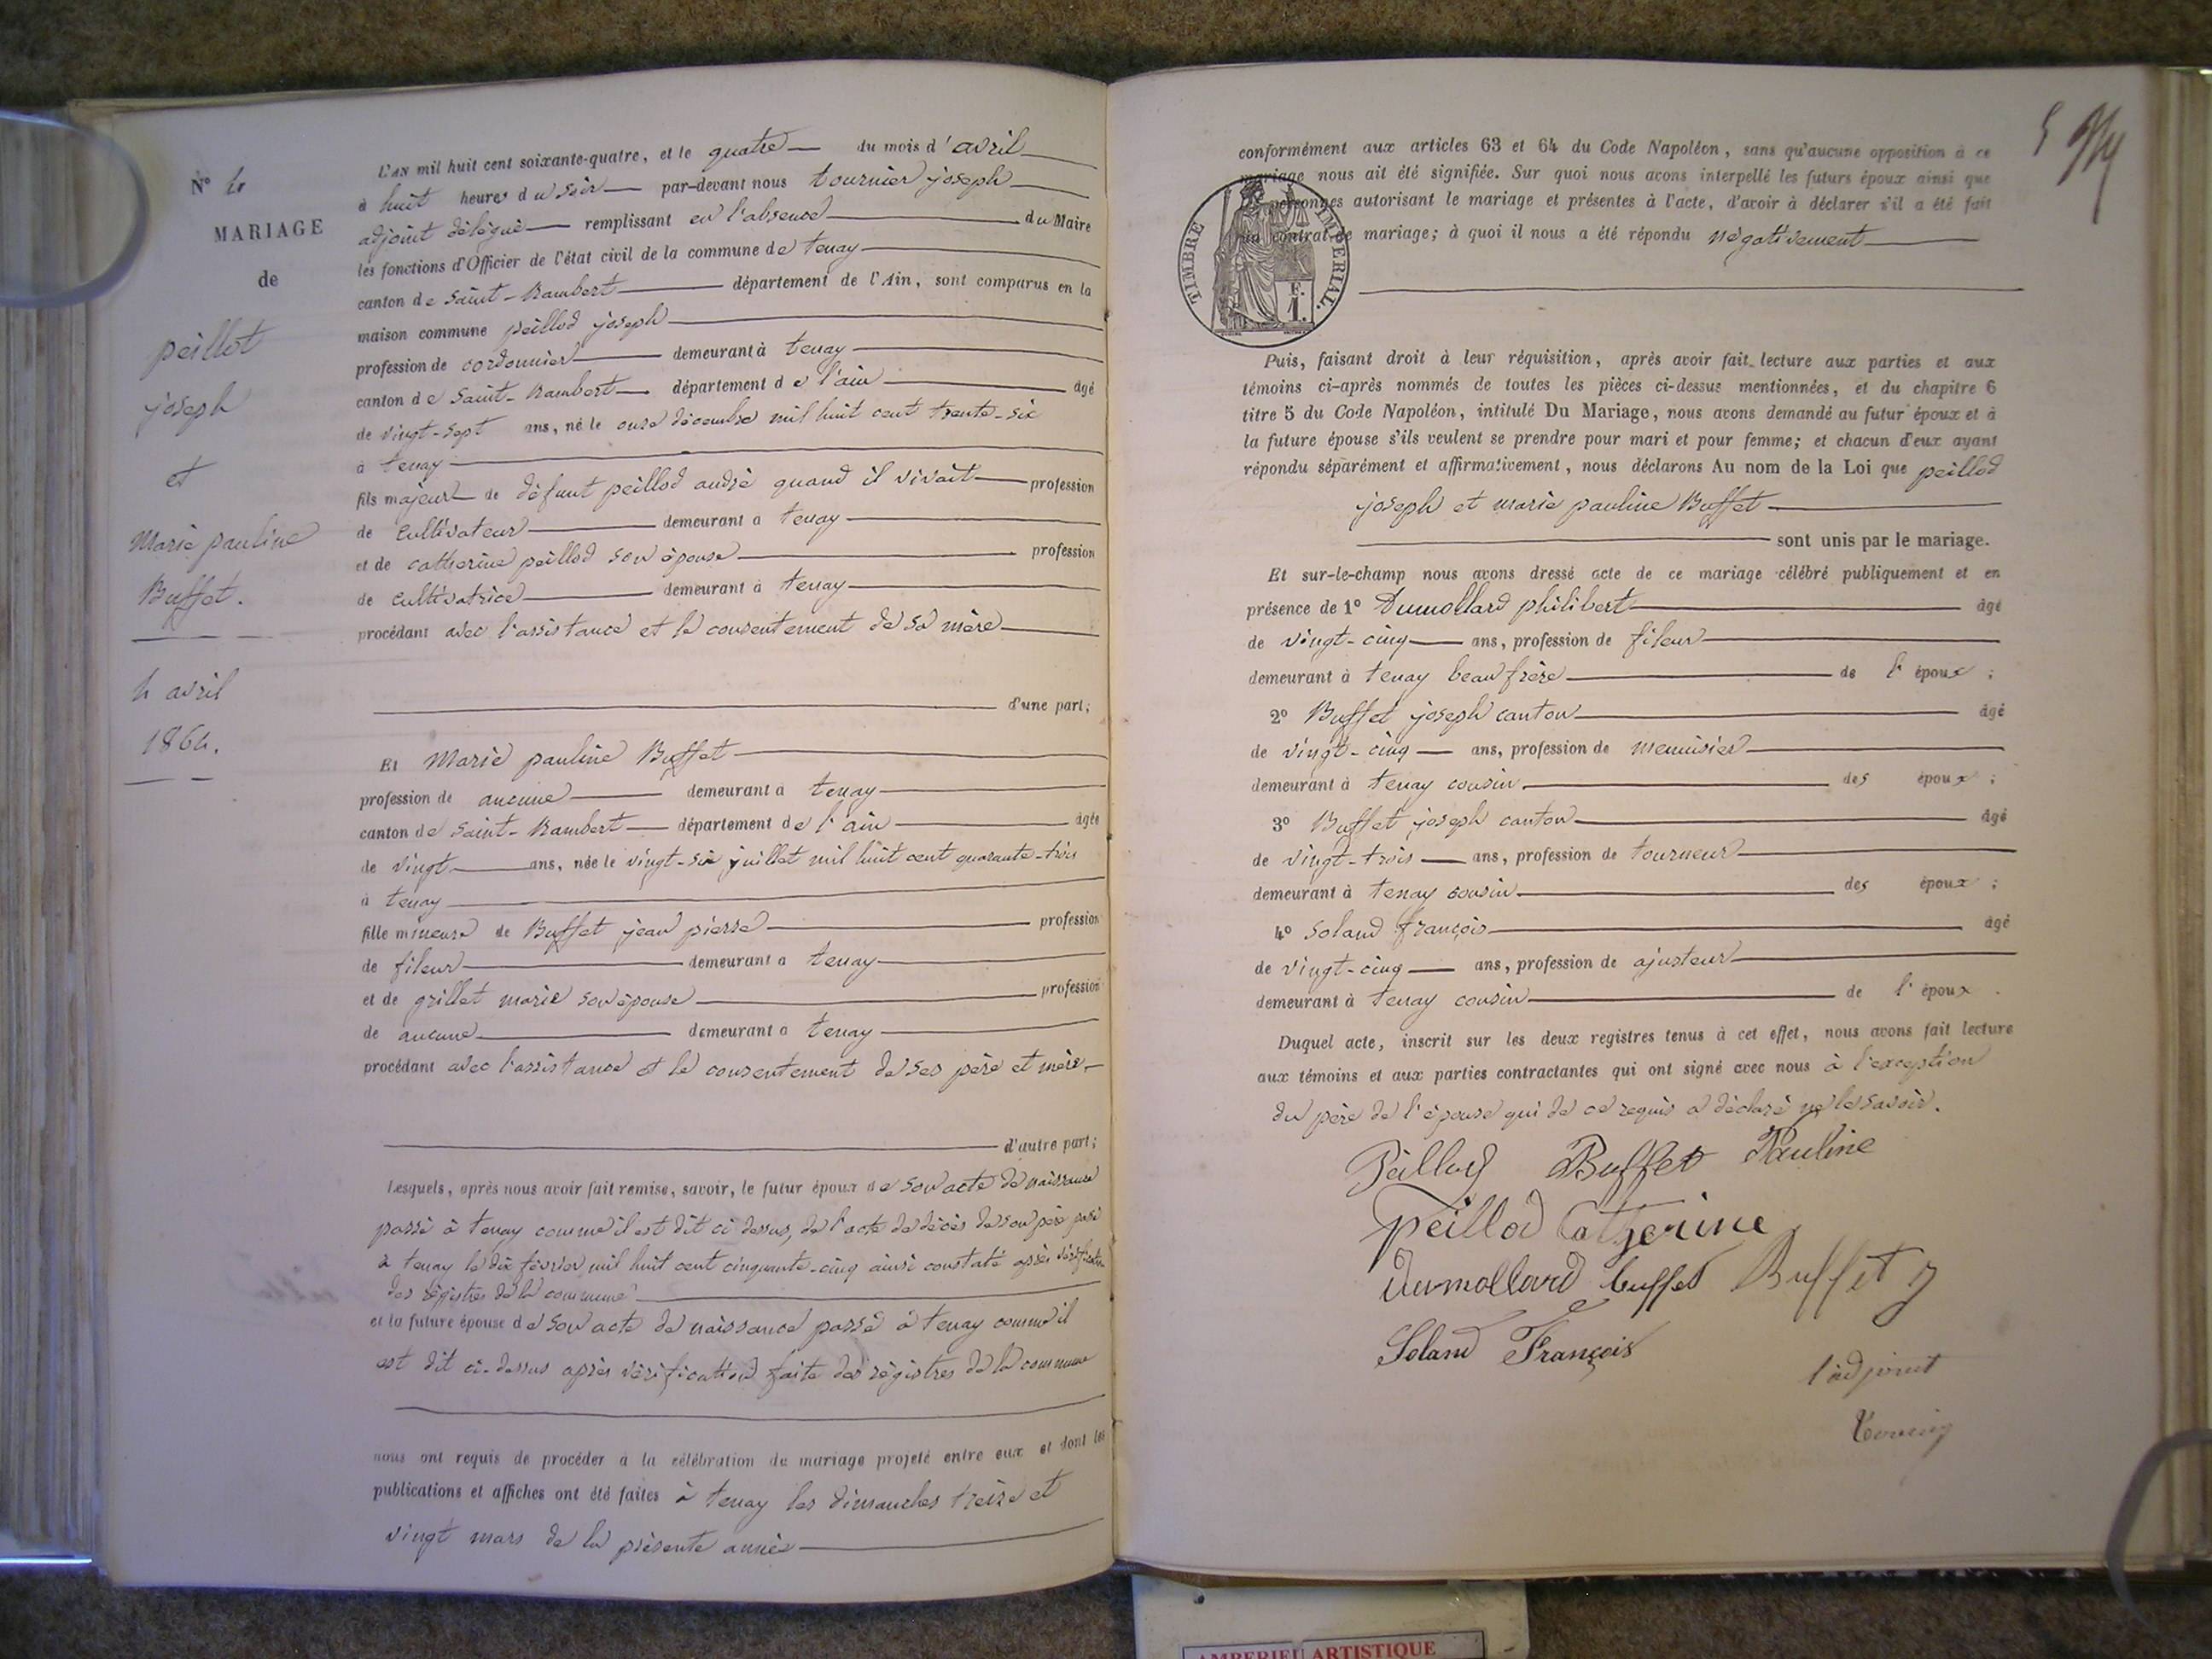 N° 4
MARIAGE
de
peillot
joseph
et
Marie pauline
Buffet.
4 avril
1864.
L'AN mil huit cent soixante-quatre, et le quatre du mois d'avril
à huit heures du soir par-devant nous tournier joseph
adjoint délégué remplissant en l'absence du Maire
les fonctions d'Officier de l'état civil de la commune de tenay
canton de saint-Rambert département de l'Ain, sont comparus en la
maison commune peillod joseph
profession de cordonnier demeurant à tenay
canton de saint-Rambert département de l'ain âgé
de vingt-sept ans, né le onze décembre mil huit cent trente-six
à tenay
fils majeur de défunt peillod andré quand il vivait profession
de cultivateur demeurant à tenay
et de catherine peillod son épouse profession
de cultivatrice demeurant à tenay
procédant avec l'assistance et le consentement de sa mère
d'une part;
Et Marie pauline Buffet
profession de aucune demeurant à tenay
canton de saint-Rambert département de l'ain âgée
de vingt ans, née le vingt-six juillet mil huit cent quarante-trois
à tenay
fille mineure de Buffet jean pierre profession
de fileur demeurant à tenay
et de grillet marie son épouse profession
de aucune demeurant à tenay
procédant avec l'assistance et le consentement de ses père et mère
d'autre part;
Lesquels, après nous avoir fait remise, savoir, le futur époux de son acte de naissance
passé à tenay comme il est dit ci dessus, de l'acte de décès de son père passé
à tenay le dix février mil huit cent cinquante-cinq ainsi constaté après vérification
des régistres de la commune
et la future épouse de son acte de naissance passé à tenay comme il
est dit ci-dessus après vérification faite des régistres de la commune
nous ont requis de procéder à la célébration du mariage projeté entre eux et dont les
publications et affiches ont été faites à tenay les dimanches treize et
vingt mars de la présente année
conformément aux articles 63 et 64 du Code Napoléon, sans qu'aucune opposition à ce
mariage nous ait été signifiée. Sur quoi nous avons interpellé les futurs époux ainsi que
personnes autorisant le mariage et présentes à l'acte, d'avoir à déclarer s'il a été fait
un contrat de mariage; à quoi il nous a été répondu négativement
TIMBRE IMPERIAL.
F.
1.
Puis, faisant droit à leur réquisition, après avoir fait lecture aux parties et aux
témoins ci-après nommés de toutes les pièces ci-dessus mentionnées, et du chapitre 6
titre 5 du Code Napoléon, intitulé Du Mariage, nous avons demandé au futur époux et à
la future épouse s'ils veulent se prendre pour mari et pour femme; et chacun d'eux ayant
répondu séparément et affirmativement, nous déclarons Au nom de la Loi que peillod
joseph et marie pauline Buffet
sont unis par le mariage.
Et sur-le-champ nous avons dressé acte de ce mariage célébré publiquement et en
présence de 1° Dumollard philibert âgé
de vingt-cinq ans, profession de fileur
demeurant à tenay beau frère de l'époux;
2° Buffet joseph canton âgé
de vingt-cinq ans, profession de menuisier
demeurant à tenay cousin des époux;
3° Buffet joseph canton âgé
de vingt-trois ans, profession de tourneur
demeurant à tenay cousin des époux;
4° Soland françois âgé
de vingt-cinq ans, profession de ajusteur
demeurant à tenay cousin de l'époux.
Duquel acte, inscrit sur les deux registres tenus à cet effet, nous avons fait lecture
aux témoins et aux parties contractantes qui ont signé avec nous à l'exception
du père de l'épouse qui de ce requis a déclaré ne le savoir.
Peillod Buffet Pauline
peillod Catherine
Dumollard buffet Buffet J
Soland François
l'adjoint
AMBERIEU ARTISTIQUE